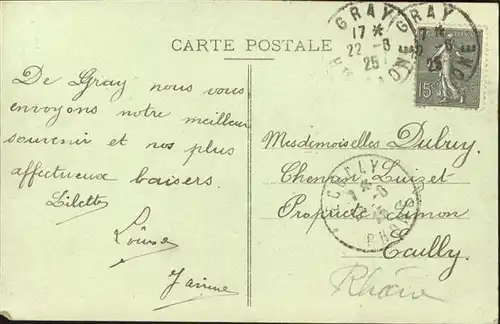 CARTE POSTALE
GRAY
17 *
22 - 6
25
GRAY
7 *
6
25
15c
De Gray nous vous
envoyons notre meilleur
souvenir et nos plus
affectueux baisers.
Lilette
Louise
Mesdemoiselles Dubuy
Chenan Luizet
Propriété Simon
Ecully
Rhône
ECULLY
RHONE